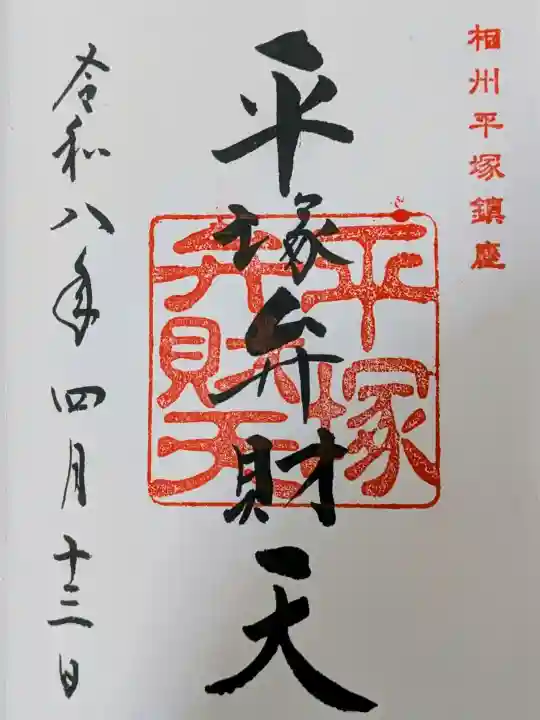 相州平塚鎮座
平塚弁財天
平塚
弁財天
令和八年四月十三日